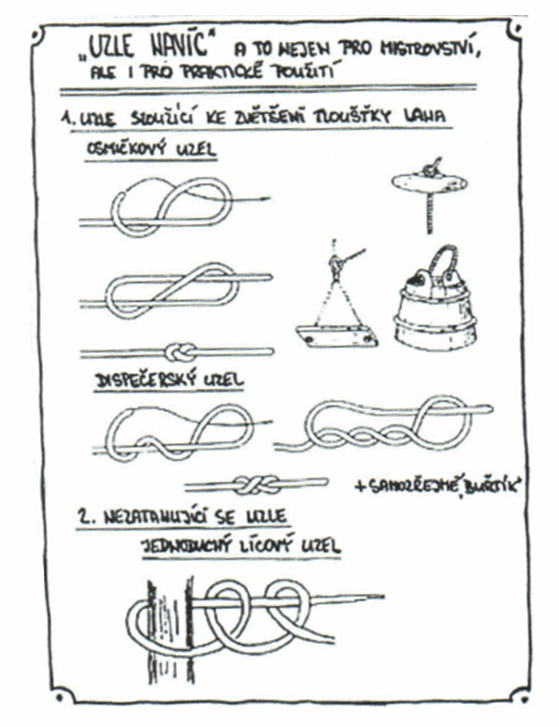 „UZLE NAVÍC" A TO NEJEN PRO MISTROVSTVÍ,
ALE I PRO PRAKTICKÉ POUŽITÍ
1. UZLE SLOUŽÍCÍ KE ZVĚTŠENÍ TLOUŠŤKY LANA
OSMIČKOVÝ UZEL
DISPEČERSKÝ UZEL
+ SAMOZŘEJMĚ „BUŘTÍK"
2. NEZATAHUJÍCÍ SE UZLE
JEDNODUCHÝ LÍCOVÝ UZEL